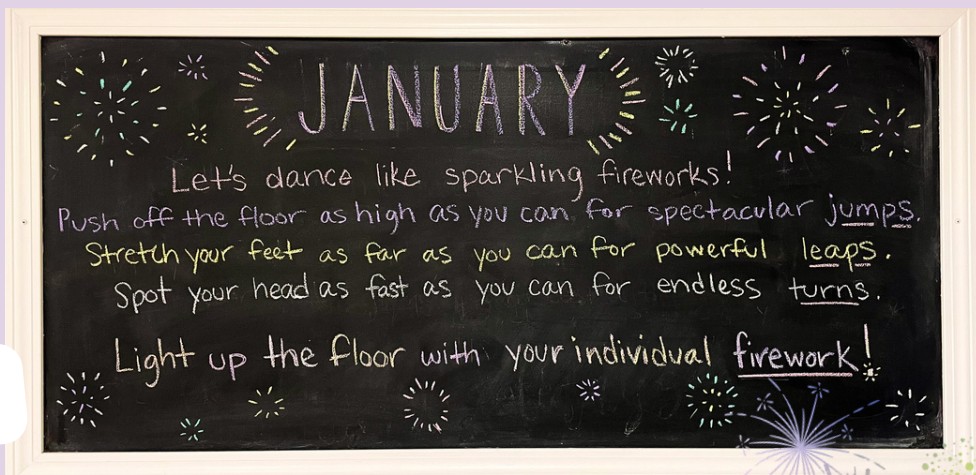 JANUARY
Let's dance like sparkling fireworks!
Push off the floor as high as you can for spectacular jumps.
Stretch your feet as far as you can for powerful leaps.
Spot your head as fast as you can for endless turns.
Light up the floor with your individual firework!